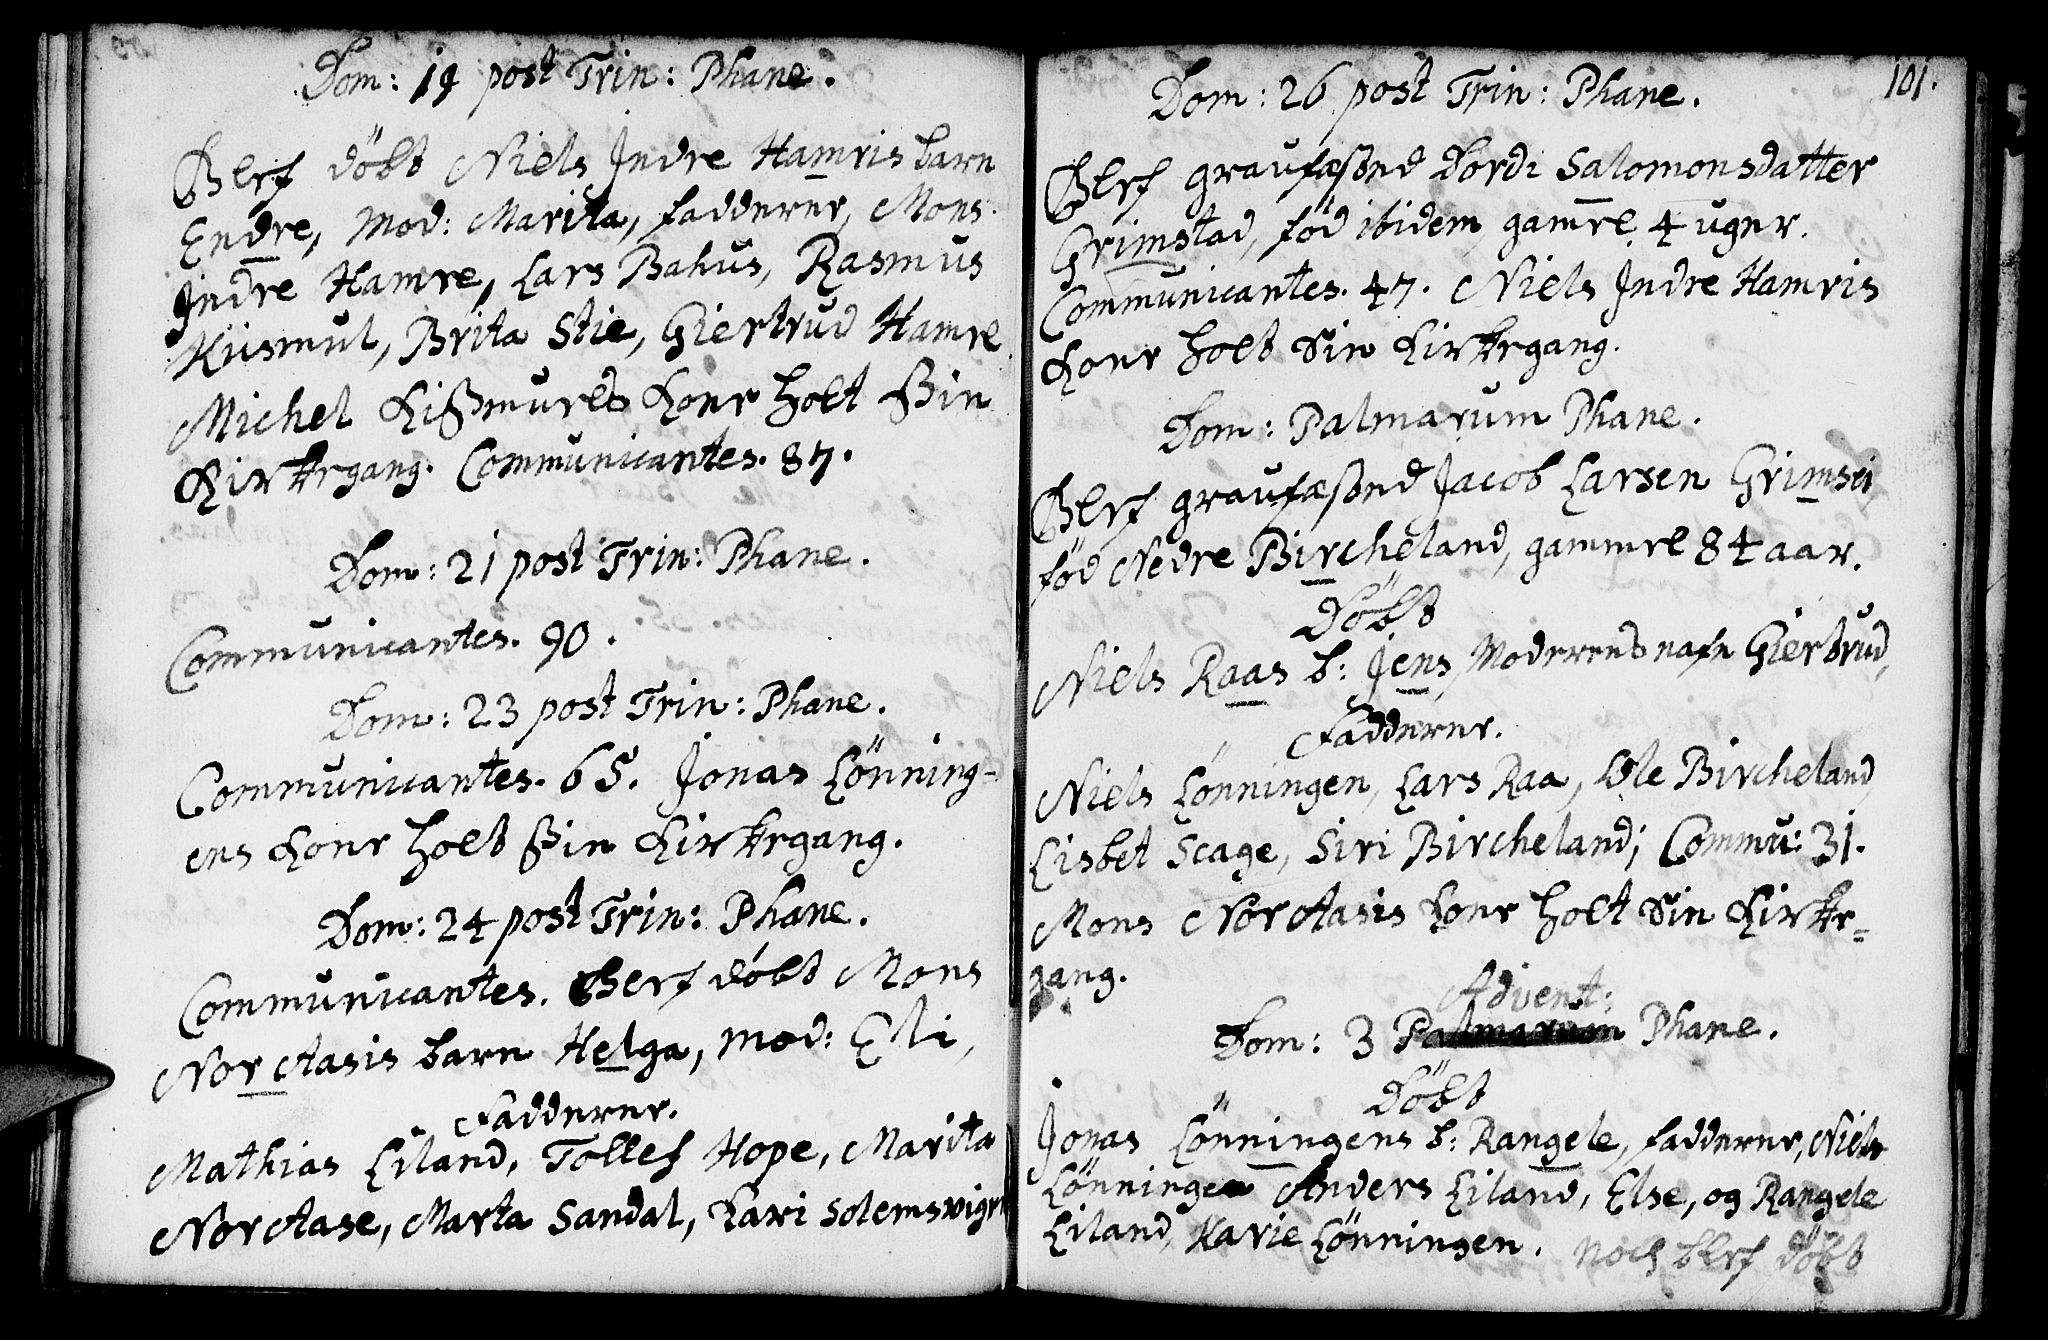 Dom: 19 post Trin: Phane.
Blef döbt Niels Indre Hamris barn
Endre, Mod: Marita, fadderne, Mons
Indre Hamre, Lars Bahus, Rasmus
Kiismul, Brita Stie, Giertrud Hamre
Michel Kißmuels Kone holt ßin
Kirkegang. Communicantes. 87.
Dom: 21 post Trin: Phane.
Communicantes. 90.
Dom: 23 post Trin: Phane.
Communicantes. 65. Jonas Lönning-
ens Kone holt ßin Kirkegang.
Dom: 24 post Trin: Phane.
Communicantes. Blef döbt Mons
Nor Aasis barn Helga, Mod: Eli,
Fadderne.
Mathias Liland, Tollef Hope, Marita
Nor Aase, Marta Sandal, Kari Solemsvigen
101.
Dom: 26 post Trin: Phane.
Blef graufæsned Dordi Salomonsdatter
Grimstad, föd ibidem, gam̅el 4 uger.
Communicantes. 47. Niels Indre Hamris
Kone holt Sin Kirkegang.
Dom: Palmarum Phane.
Blef graufæsned Jacob Larsen Grimsei,
föd Nedre Bircheland, gammel 84 aar.
Döbt
Niels Raas b: Jens, Moderens nafn Giertrud,
Fadderne.
Niels Lönningen, Lars Raa, Ole Bircheland,
Lisbet Scage, Siri Bircheland; Commu: 31.
Mons Nor Aasis Kone holt Sin Kirke-
gang.
Advent:
Dom: 3 Palmarum Phane.
Döbt
Jonas Lönningens b: Rangele, fadderne, Niels
Lönningen Anders Liland, Else, og Rangele
Liland, Karie Lönningen. Noch blef döbt